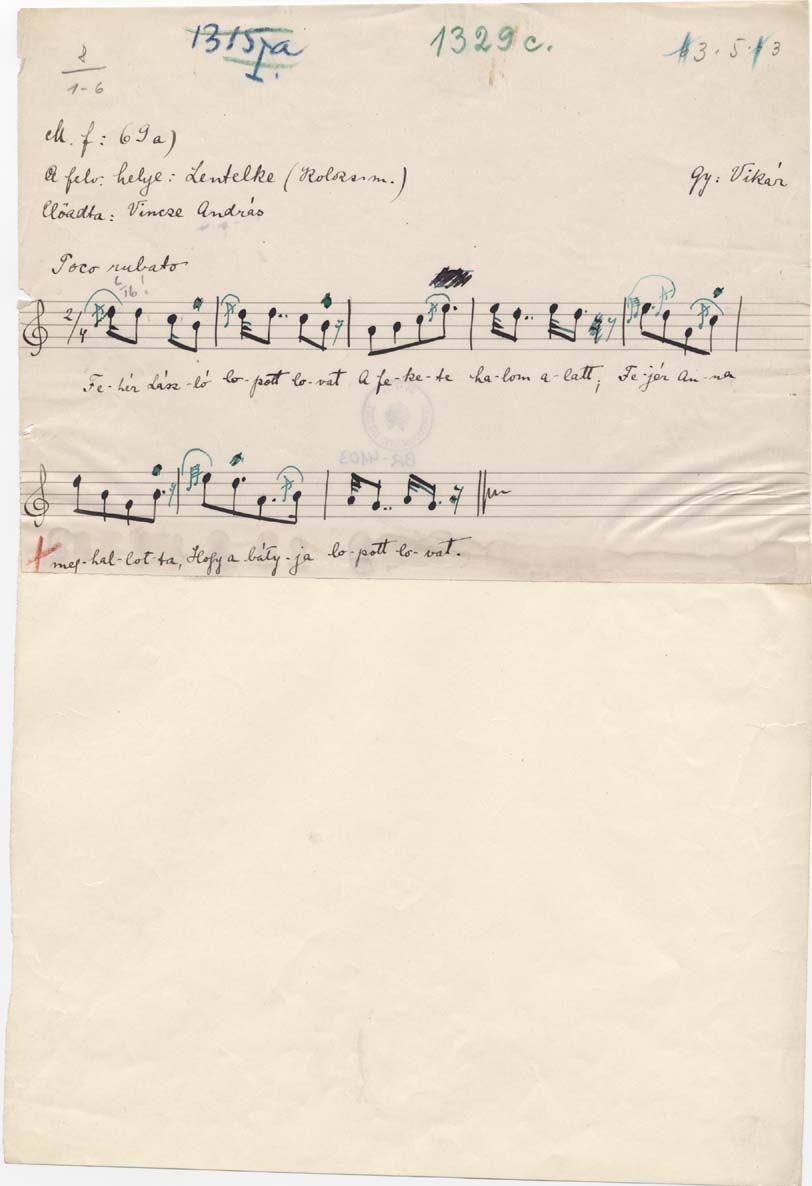 8
1-6
1315/a
I.
1329 c.
3. 5. 3
M. f: 69a)
A felv. helye: Lentelke (Kolozsm.)
Gy: Vikár
Előadta: Vincze András
Poco rubato
2/4
Fe-hér Lász-ló lo-pott lo-vat A fe-ke-te ha-lom a-latt; Fe-jér An-na
BR-4103
meg-hal-lot-ta, Hogy a báty-ja lo-pott lo-vat.